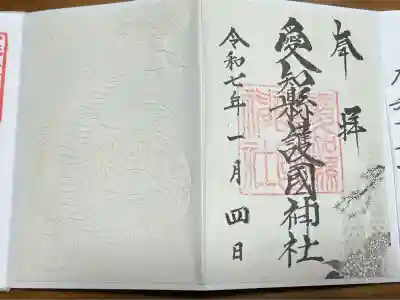 奉拝
愛知縣護國神社
令和七年一月四日